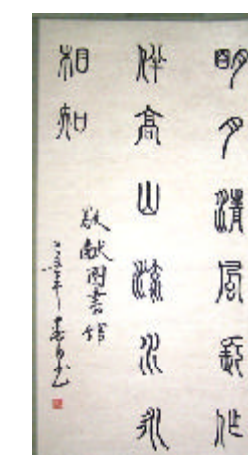 明月清風新作
伴高山流水永
相知
敬献图書館